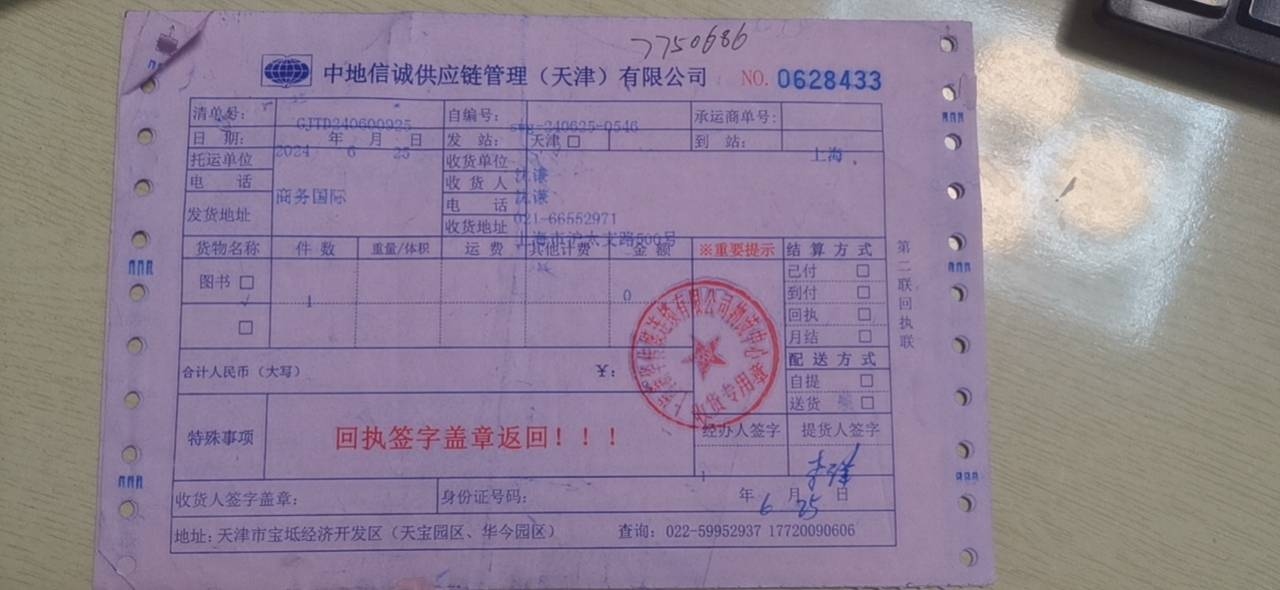 7750686
中地信诚供应链管理（天津）有限公司 NO. 0628433
清单号： GJTD240600925 自编号： swg-240625-0546 承运商单号：
日 期： 2024 年 6 月 25 日 发 站： 天津□ 到 站： 上海
托运单位 商务国际 收货单位 沈谦
电 话 收 货 人 沈谦
发货地址 电 话 021-66552971
收货地址 上海市沪太支路500号
货物名称 件 数 重量/体积 运 费 其他计费 金 额 ※重要提示 结 算 方 式
图书 □ √ 1 0 已付 □
□ 到付 □
回执 □
月结 □
合计人民币（大写） ¥： 配 送 方 式
自提 □
送货 □
特殊事项 回执签字盖章返回！！！ 经办人签字 提货人签字
收货人签字盖章： 身份证号码： 年 6 月 25 日
地址：天津市宝坻经济开发区（天宝园区、华今园区） 查询：022-59952937 17720090606
第二联回执联
收货专用章